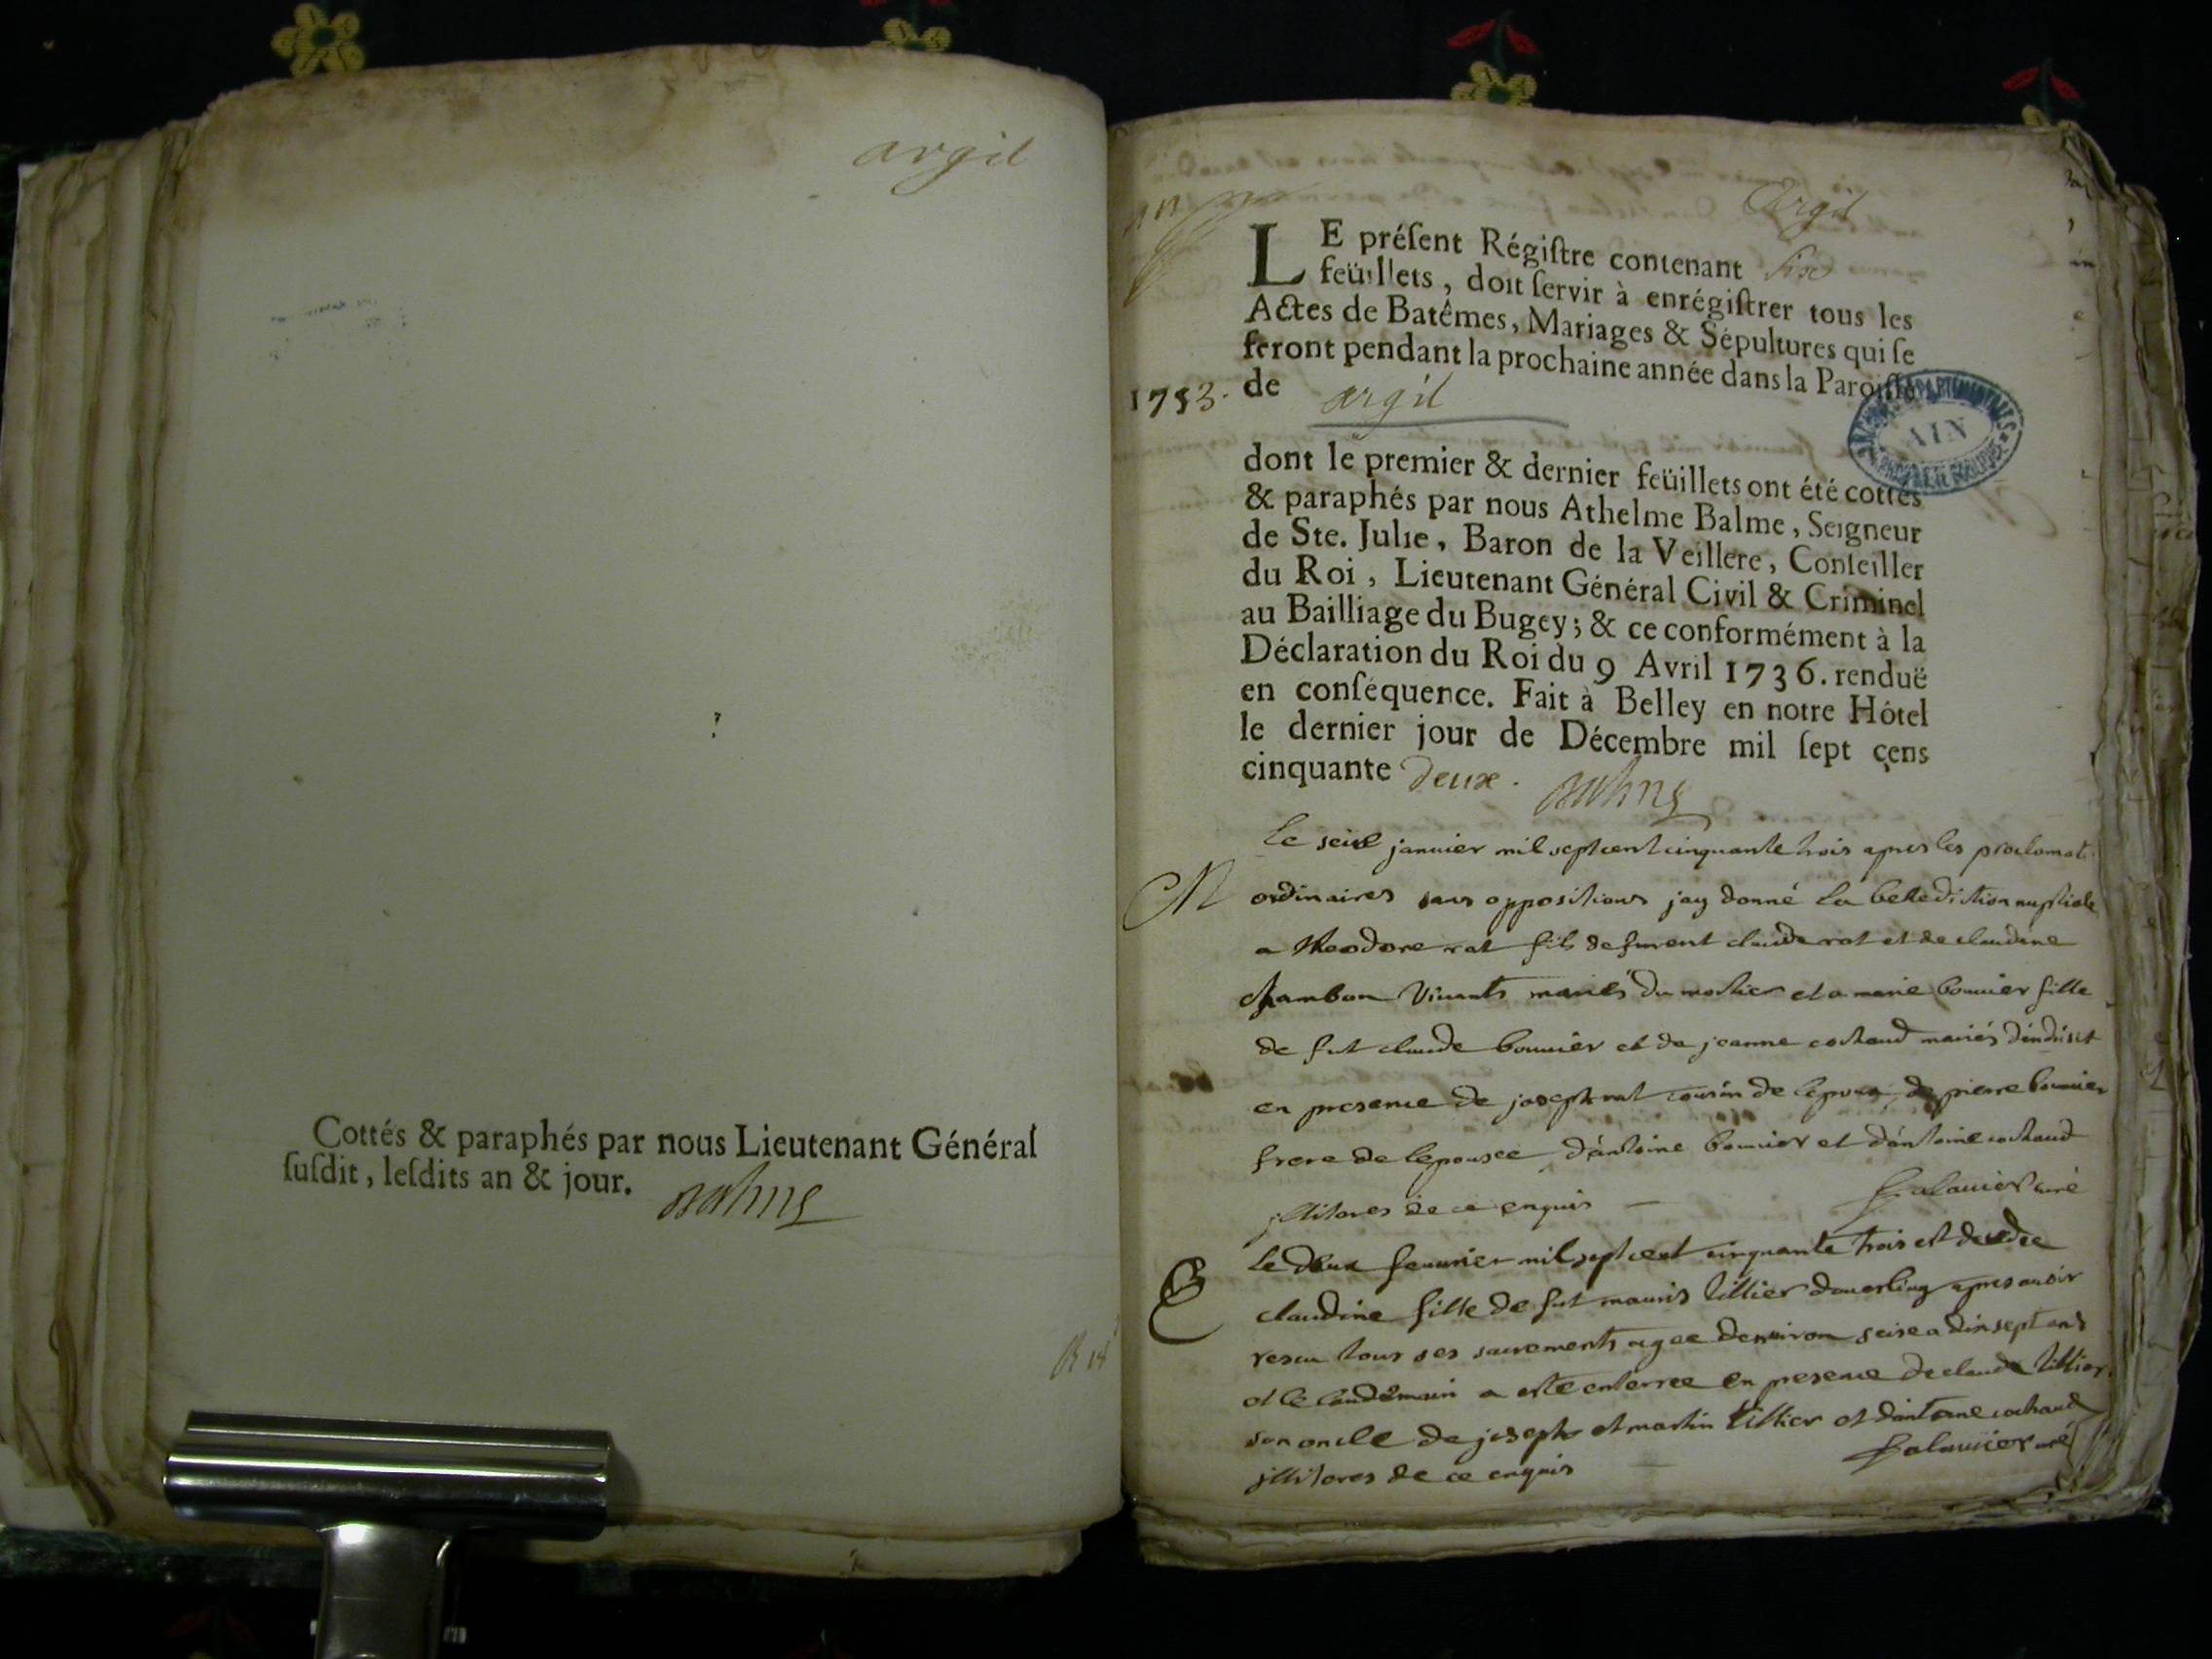 argil
Cottés & paraphés par nous Lieutenant Général
ſuſdit, leſdits an & jour.
Argil
LE préſent Régiſtre contenant six
feüillets, doit ſervir à enrégiſtrer tous les
Actes de Batêmes, Mariages & Sépultures qui ſe
feront pendant la prochaine année dans la Paroiſſe
1753. de argil
ARCHIVES DÉPARTEMENTALES
AIN
dont le premier & dernier feüillets ont été cottés
& paraphés par nous Athelme Balme, Seigneur
de Ste. Julie, Baron de la Veillere, Conſeiller
du Roi, Lieutenant Général Civil & Criminel
au Bailliage du Bugey; & ce conformément à la
Déclaration du Roi du 9 Avril 1736. renduë
en conſéquence. Fait à Belley en notre Hôtel
le dernier jour de Décembre mil ſept cens
cinquante deux.
Le seise janvier mil septcent cinquante trois apres les proclamat
M ordinaires sans oppositions jay donné la benediction nuptiale
a Theodore rat fils de furent claude rat et de claudine
chambon vivants mariés du et a marie bonnier fille
de fut claude bonnier et de jeanne cochaud mariés
en presence de joseph rat cousin de lepoux, de pierre bonnier
frere de lepousee d'antoine bonnier et d'antoine cochaud
jllitores de ce enquis curé
Le deux feuurier mil sept cent cinquante trois est decedee
claudine fille de fut mauris tillier apres auoir
rescu tous ses sacrements agee denuiron seise a dixsept ans
et le landemain a este enterree en presence de claude tillier
son oncle de joseph et martin tillier et dantoine cochaud
jllitores de ce enquis curé